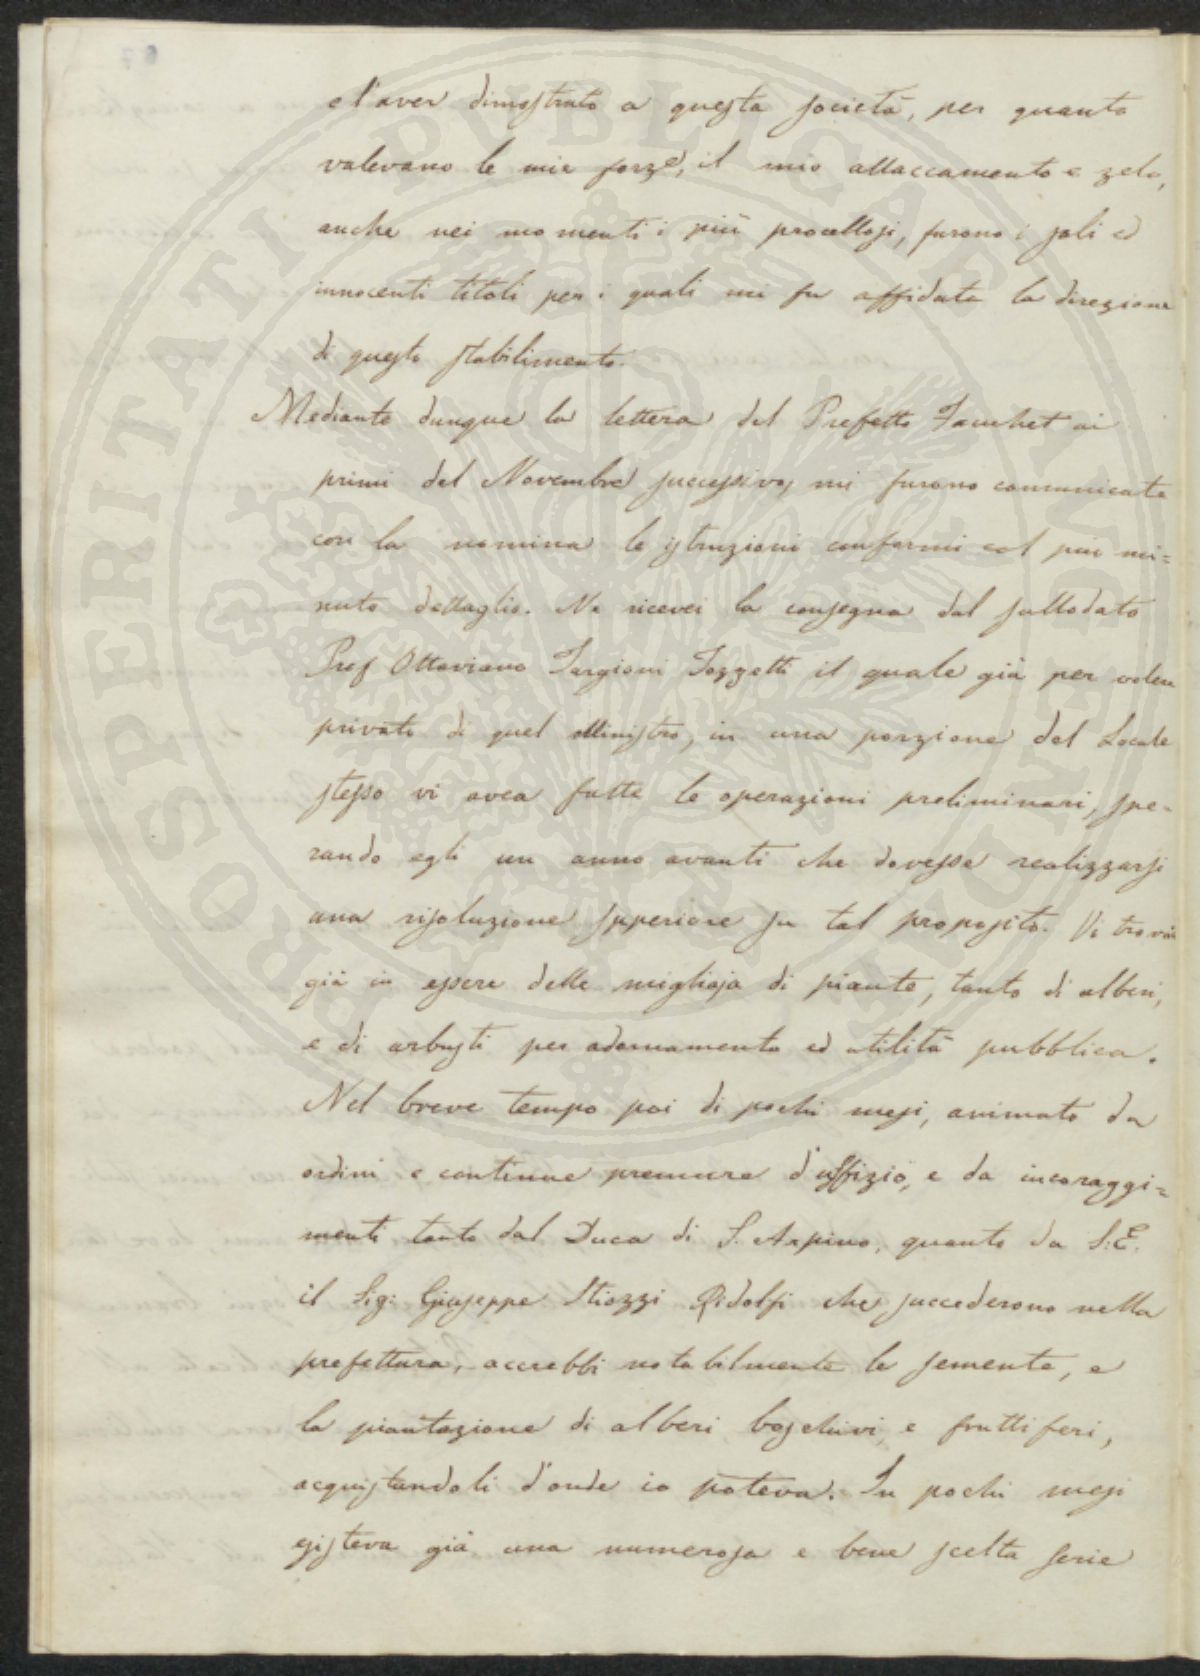 e l'aver dimostrato a questa società, per quanto
valevano le mie forze, il mio attaccamento e zelo,
anche nei momenti i più procellosi, furono i soli ed
innocenti titoli per i quali mi fu affidata la direzione
di questo stabilimento.
Mediante dunque la lettera del Prefetto Fauchet ai
primi del Novembre successivo, mi furono comunicate
con la nomina le istruzioni conformi col più mi=
nuto dettaglio. Ne ricevei la consegna dal sullodato
Prof Ottaviano Targioni Tozzetti il quale già per volere
privato di quel Ministro, in una porzione del Locale
stesso vi avea fatte le operazioni preliminari, spe-
rando egli un anno avanti che dovesse realizzarsi
una risoluzione superiore su tal proposito. Vi trovai
già in essere delle migliaja di piante, tanto di alberi,
e di arbusti per adornamento ed utilità pubblica.
Nel breve tempo poi di pochi mesi, animato da
ordini e continue premure d'uffizio, e da incoraggi=
menti tanto dal Duca di S. Arpino, quanto da S:E.
il Sig: Giuseppe Stiozzi Ridolfi che succederono nella
prefettura, accrebbi notabilmente le semente, e
la piantazione di alberi boschivi, e fruttiferi,
acquistandoli d'onde io poteva. In pochi mesi
esisteva già una numerosa e bene scelta serie
PROSPERITATI PUBLICAE AUGENDAE